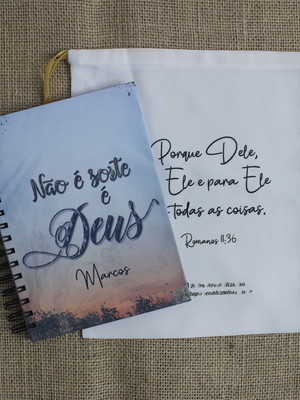 Não é sorte
é
Deus
Marcos
Porque Dele,
Ele e para Ele
todas as coisas.
Romanos 11:36